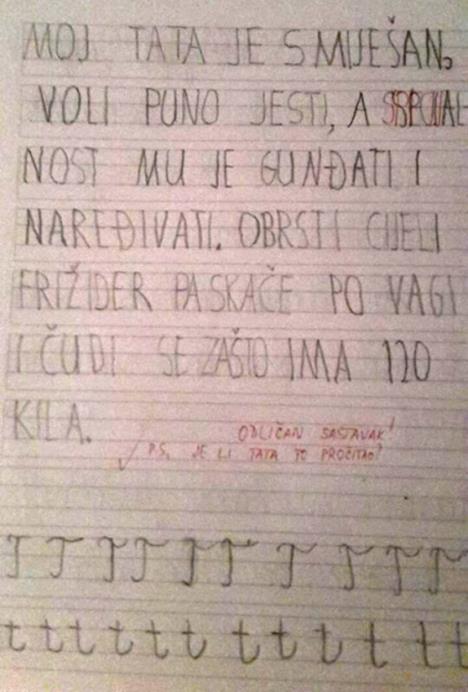 MOJ TATA JE SMIJEŠAN,
VOLI PUNO JESTI, A
NOST MU JE GUNĐATI I
NAREĐIVATI. OBRSTI CIJELI
FRIŽIDER PA SKAČE PO VAGI
I ČUDI SE ZAŠTO IMA 120
KILA.
ODLIČAN SASTAVAK!
P.S. JE LI TATA TO PROČITAO?
T T T T T T T T T T
t t t t t t t t t t t